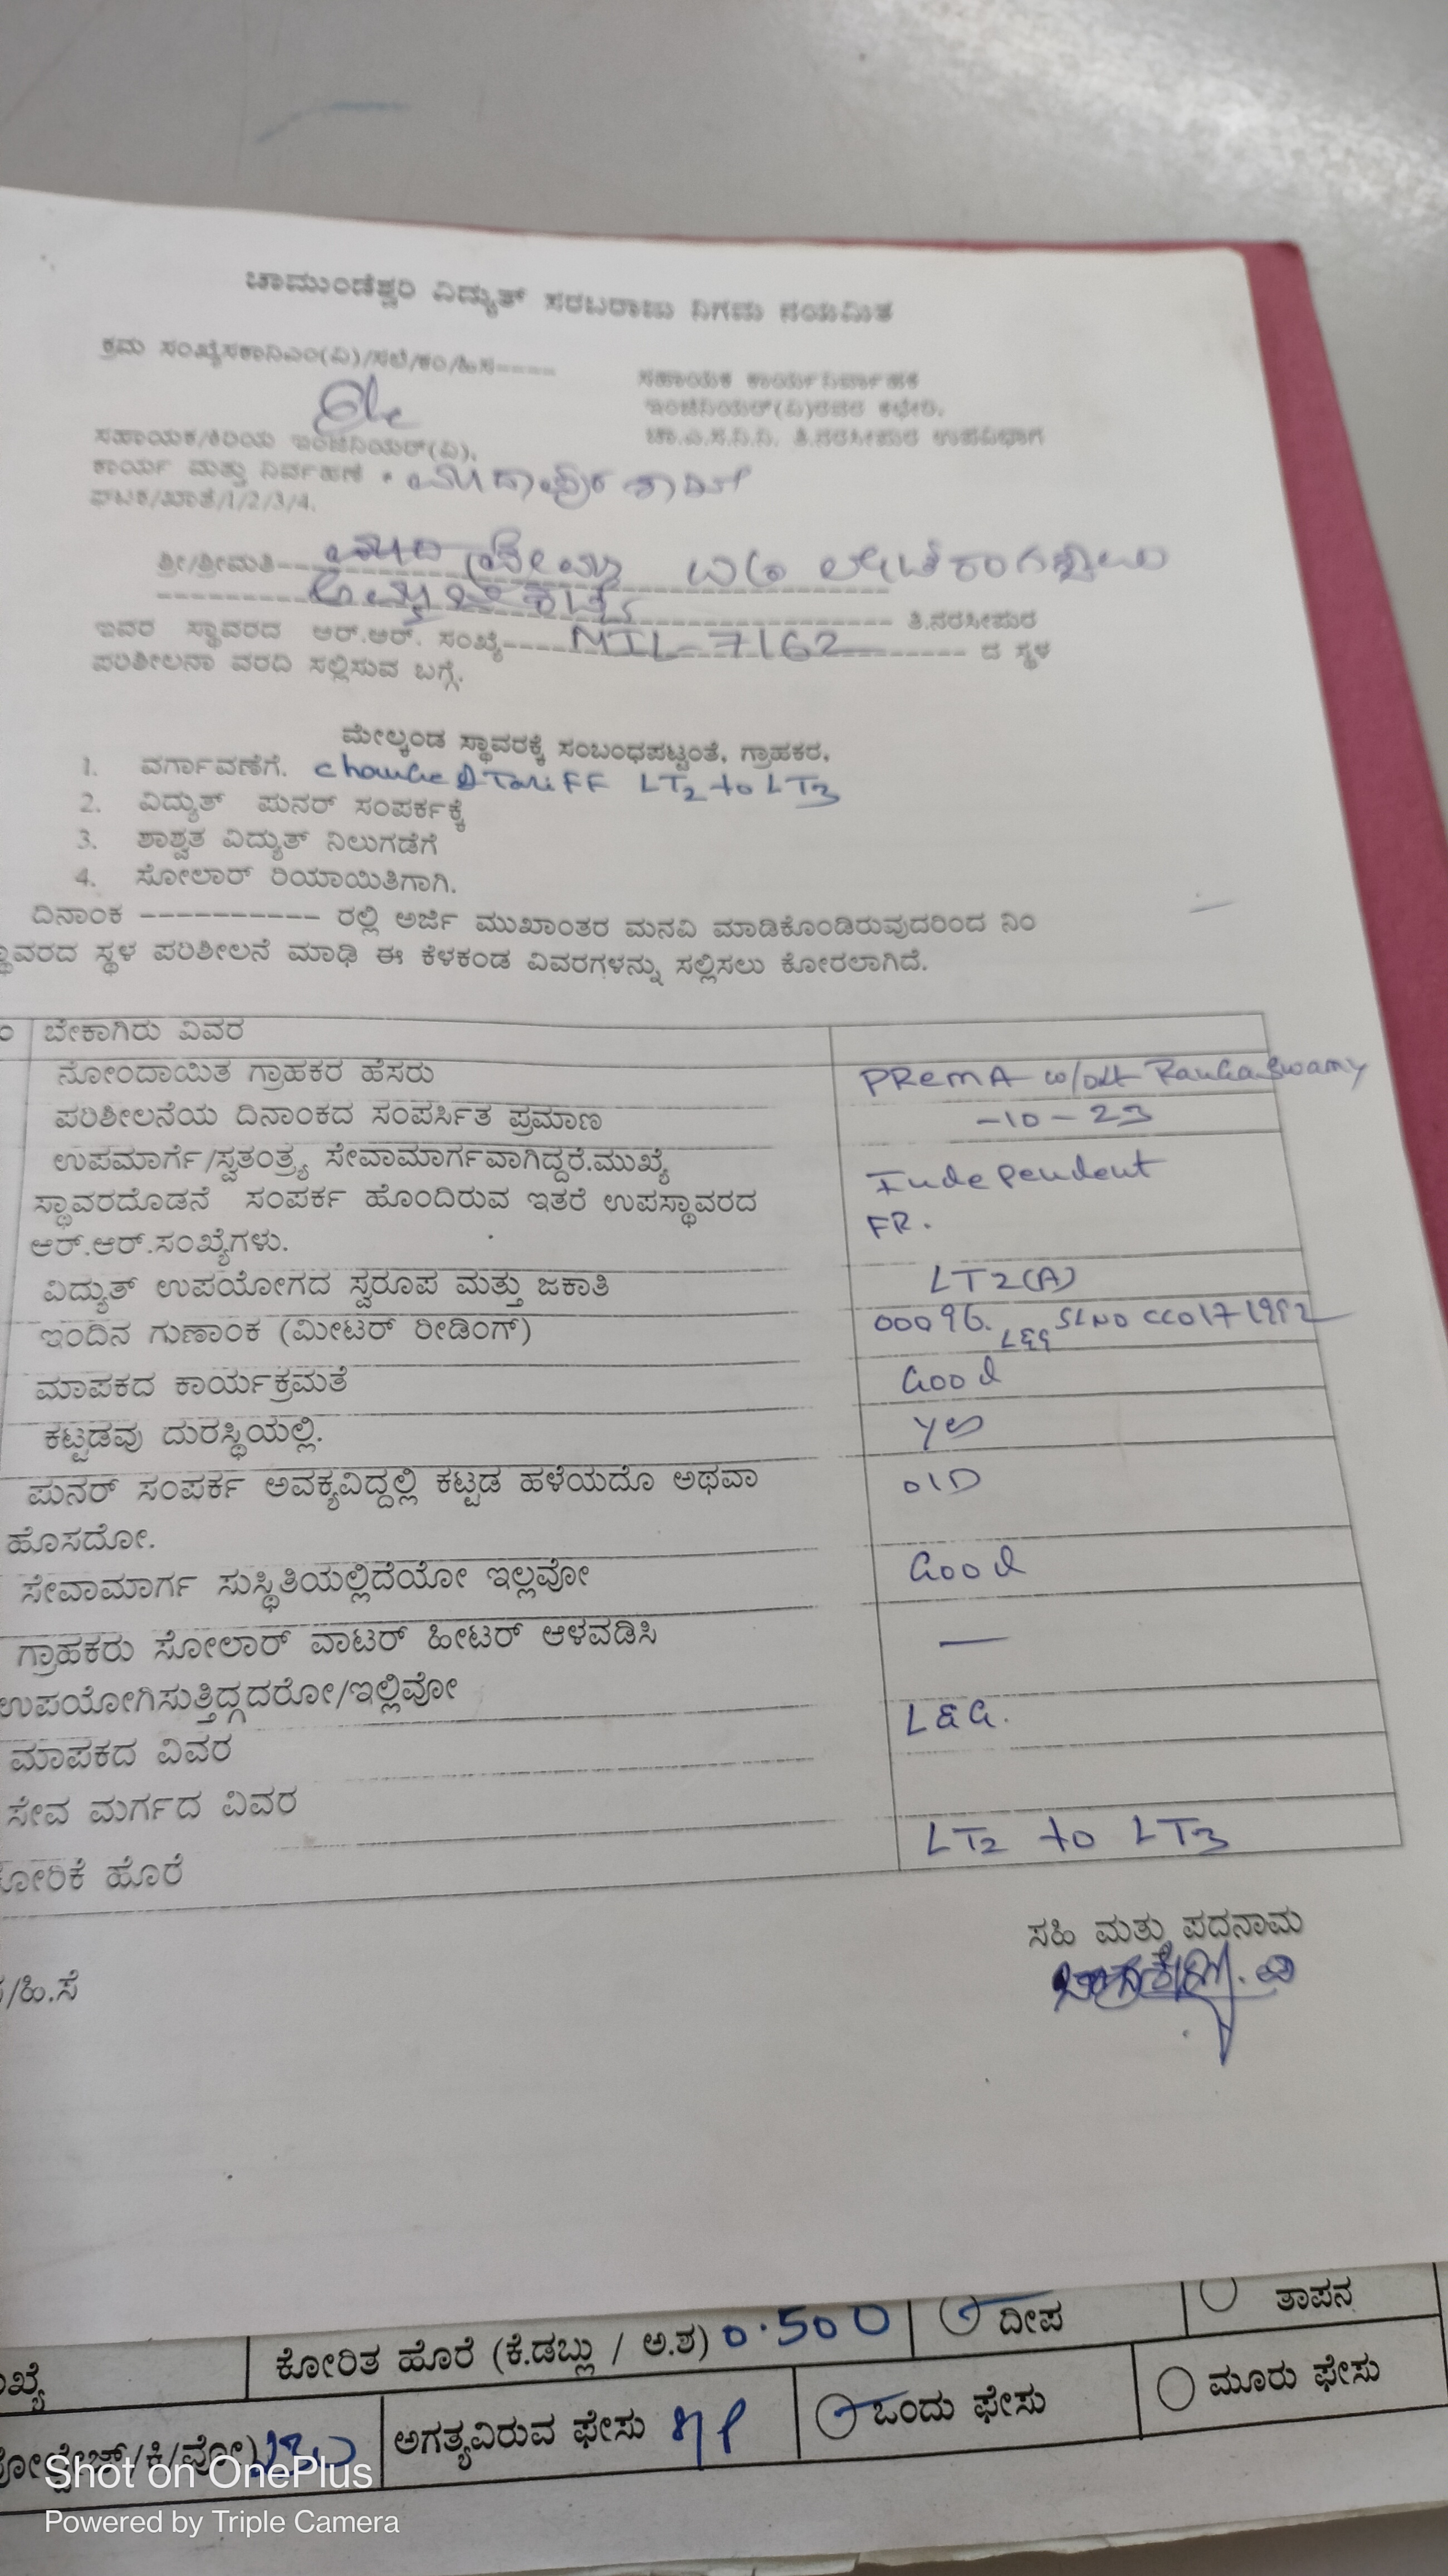 ಚಾಮುಂಡೇಶ್ವರಿ ವಿದ್ಯುತ್ ಸರಬರಾಜು ನಿಗಮ ನಿಯಮಿತ
ಕ್ರಮ ಸಂಖ್ಯೆಸಕಾನಿಎಂ(ವಿ)/ಸಲೆ/ಕಂ/ಹಿಸ----
ಸಹಾಯಕ ಕಾರ್ಯನಿರ್ವಾಹಕ
ಇಂಜಿನಿಯರ್(ವಿ)ರವರ ಕಛೇರಿ,
ಚಾ.ವಿ.ಸ.ನಿ.ನಿ. ತಿ.ನರಸೀಪುರ ಉಪವಿಭಾಗ
ಸಹಾಯಕ/ಕಿರಿಯ ಇಂಜಿನಿಯರ್(ವಿ),
ಕಾರ್ಯ ಮತ್ತು ನಿರ್ವಹಣೆ
ಘಟಕ/ಖಾತೆ/1/2/3/4.
ಶ್ರೀ/ಶ್ರೀಮತಿ-- ಪ್ರೇಮ
ಇವರ ಸ್ಥಾವರದ ಆರ್.ಆರ್. ಸಂಖ್ಯೆ---- MIL-7162 ---- ತಿ.ನರಸೀಪುರ ದ ಸ್ಥಳ
ಪರಿಶೀಲನಾ ವರದಿ ಸಲ್ಲಿಸುವ ಬಗ್ಗೆ.
ಮೇಲ್ಕಂಡ ಸ್ಥಾವರಕ್ಕೆ ಸಂಬಂಧಪಟ್ಟಂತೆ, ಗ್ರಾಹಕರ,
1. ವರ್ಗಾವಣೆಗೆ. Tariff LT2 to LT3
2. ವಿದ್ಯುತ್ ಪುನರ್ ಸಂಪರ್ಕಕ್ಕೆ
3. ಶಾಶ್ವತ ವಿದ್ಯುತ್ ನಿಲುಗಡೆಗೆ
4. ಸೋಲಾರ್ ರಿಯಾಯಿತಿಗಾಗಿ.
ದಿನಾಂಕ ---------- ರಲ್ಲಿ ಅರ್ಜಿ ಮುಖಾಂತರ ಮನವಿ ಮಾಡಿಕೊಂಡಿರುವುದರಿಂದ ನಿಂ
ಸ್ಥಾವರದ ಸ್ಥಳ ಪರಿಶೀಲನೆ ಮಾಢಿ ಈ ಕೆಳಕಂಡ ವಿವರಗಳನ್ನು ಸಲ್ಲಿಸಲು ಕೋರಲಾಗಿದೆ.
ಬೇಕಾಗಿರು ವಿವರ
ನೋಂದಾಯಿತ ಗ್ರಾಹಕರ ಹೆಸರು PRemA w/o Lt RangaSwamy
ಪರಿಶೀಲನೆಯ ದಿನಾಂಕದ ಸಂಪರ್ಸಿತ ಪ್ರಮಾಣ -10-23
ಉಪಮಾರ್ಗ/ಸ್ವತಂತ್ರ್ಯ ಸೇವಾಮಾರ್ಗವಾಗಿದ್ದರೆ.ಮುಖ್ಯೆ Independent
ಸ್ಥಾವರದೊಡನೆ ಸಂಪರ್ಕ ಹೊಂದಿರುವ ಇತರೆ ಉಪಸ್ಥಾವರದ FR.
ಆರ್.ಆರ್.ಸಂಖ್ಯೆಗಳು.
ವಿದ್ಯುತ್ ಉಪಯೋಗದ ಸ್ವರೂಪ ಮತ್ತು ಜಕಾತಿ LT2(A)
ಇಂದಿನ ಗುಣಾಂಕ (ಮೀಟರ್ ರೀಡಿಂಗ್) 00096. L&G SLNO
ಮಾಪಕದ ಕಾರ್ಯಕ್ರಮತೆ Good
ಕಟ್ಟಡವು ದುರಸ್ಥಿಯಲ್ಲಿ. yes
ಪುನರ್ ಸಂಪರ್ಕ ಅವಕ್ಯವಿದ್ದಲ್ಲಿ ಕಟ್ಟಡ ಹಳೆಯದೊ ಅಥವಾ olD
ಹೊಸದೋ.
ಸೇವಾಮಾರ್ಗ ಸುಸ್ಥಿತಿಯಲ್ಲಿದೆಯೋ ಇಲ್ಲವೋ Good
ಗ್ರಾಹಕರು ಸೋಲಾರ್ ವಾಟರ್ ಹೀಟರ್ ಆಳವಡಿಸಿ —
ಉಪಯೋಗಿಸುತ್ತಿದ್ಗದರೋ/ಇಲ್ಲಿವೋ
ಮಾಪಕದ ವಿವರ L&G.
ಸೇವ ಮರ್ಗದ ವಿವರ
ಕೋರಿಕೆ ಹೊರೆ LT2 to LT3
ಸಹಿ ಮತ್ತು ಪದನಾಮ
/ಹಿ.ಸೆ
ಕೋರಿತ ಹೊರೆ (ಕೆ.ಡಬ್ಲು / ಅ.ಶ) 0.500 ದೀಪ ತಾಪನ
ಅಗತ್ಯವಿರುವ ಫೇಸು ಒಂದು ಫೇಸು ಮೂರು ಫೇಸು
Shot on OnePlus
Powered by Triple Camera